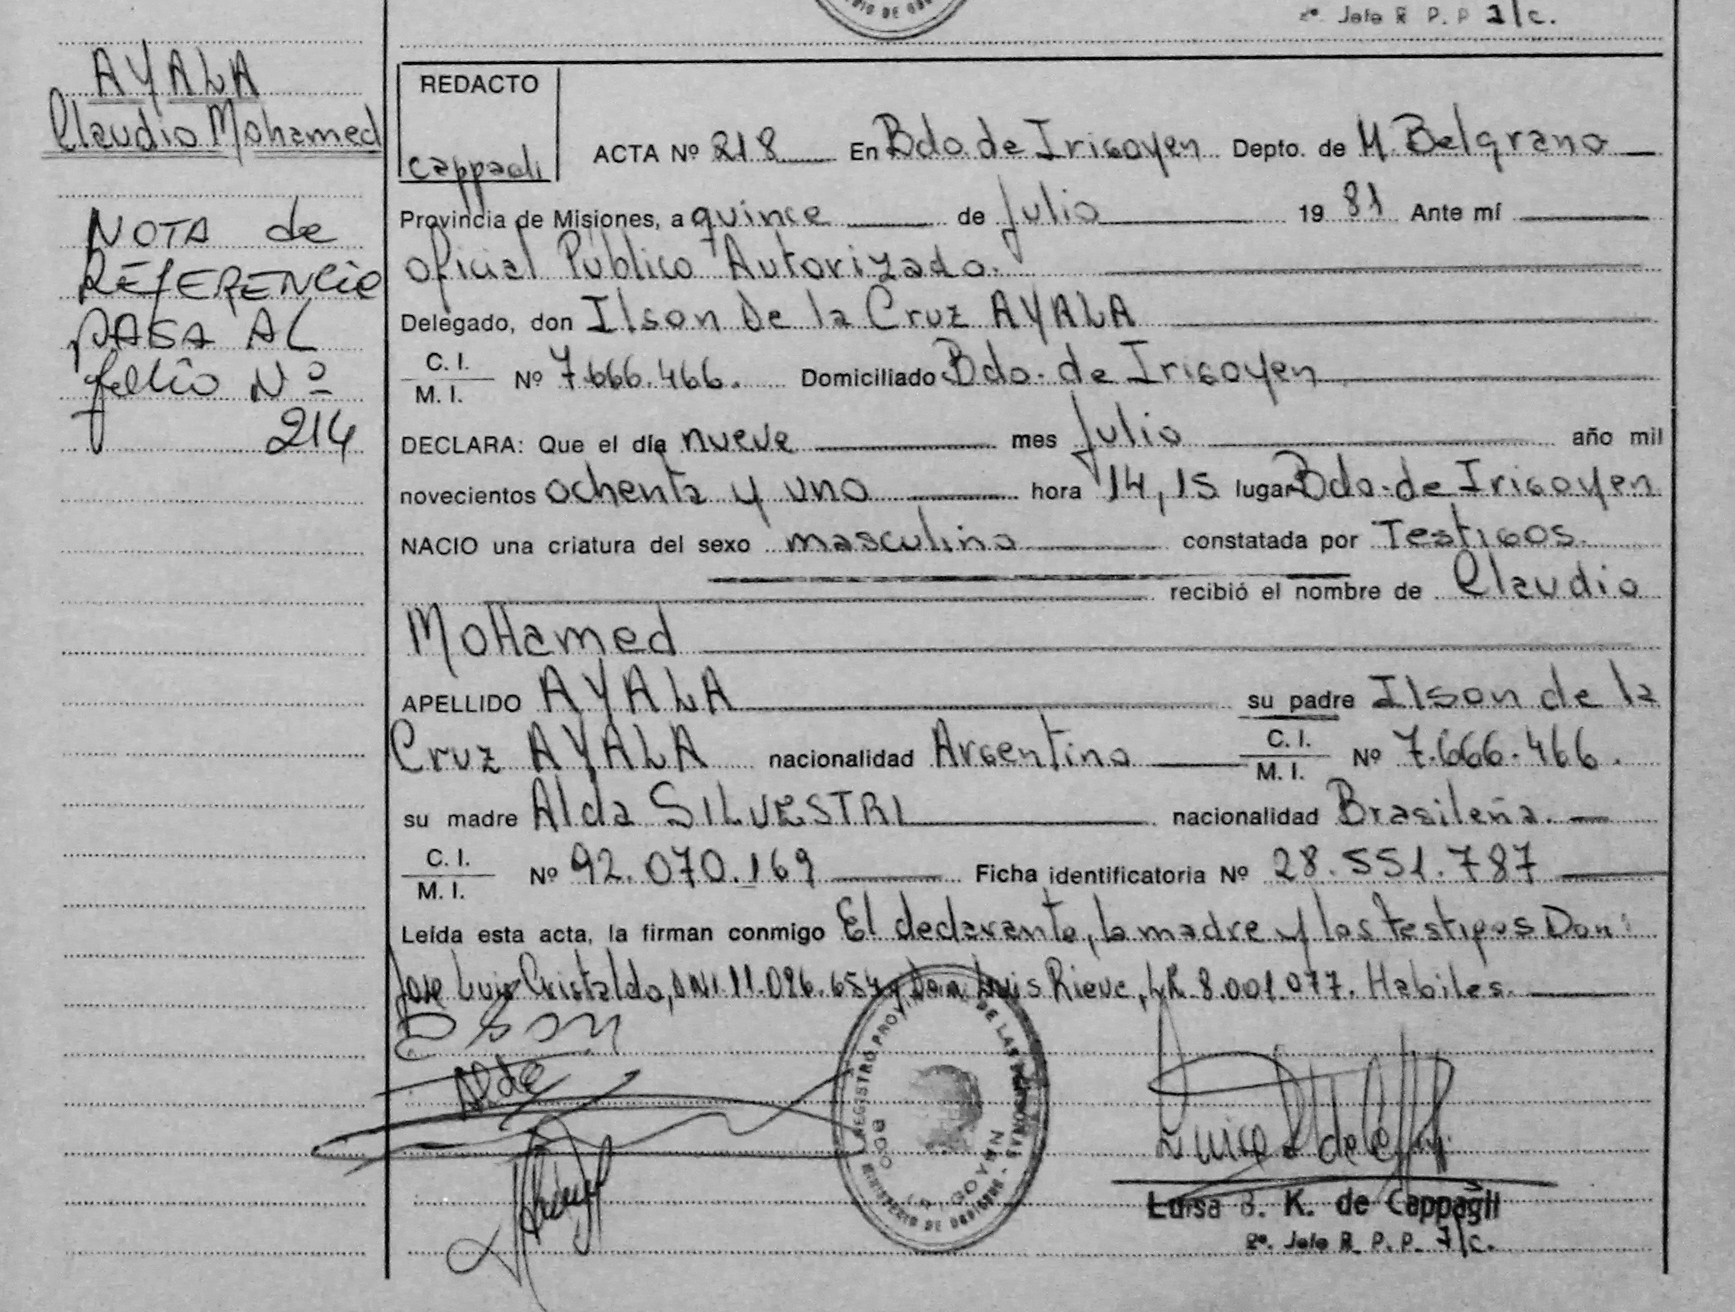 2º Jefe R. P. P. a/c.
AYALA
Claudio Mohamed
NOTA de
REFERENCIA
PASA AL
folio Nº
214
REDACTO
Cappagli
ACTA Nº 218 En Bdo. de Irigoyen Depto. de M. Belgrano
Provincia de Misiones, a quince de Julio 19 81 Ante mí
Oficial Público Autorizado.
Delegado, don Ilson De la Cruz AYALA
C. I.
M. I. Nº 7.666.466. Domiciliado Bdo. de Irigoyen
DECLARA: Que el día nueve mes Julio año mil
novecientos ochenta y uno hora 14,15 lugar Bdo. de Irigoyen
NACIO una criatura del sexo masculino constatada por Testigos.
recibió el nombre de Claudio
MoHamed
APELLIDO AYALA su padre Ilson de la
Cruz AYALA nacionalidad Argentino C. I.
M. I. Nº 7.666.466.
su madre Alda SILVESTRI nacionalidad Brasileña.
C. I.
M. I. Nº 92.070.169 Ficha identificatoria Nº 28.551.787
Leída esta acta, la firman conmigo El declarante, la madre y los testigos Don:
Jose Luis Cristaldo, DNI 11.096.654 y Don Luis Rieve, LE 8.001.077. Habiles.
Alda
REGISTRO PROV DE LAS PERSONAS
MINISTERIO DE GOBIERNO
BDO IRIGOYEN
Luisa B. K. de Cappagli
2º. Jefe R. P. P. a/c.